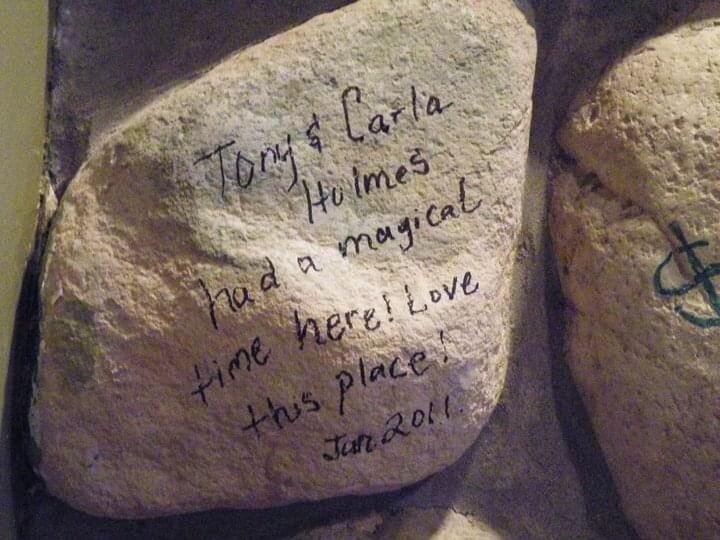 Tony & Carla
Holmes
had a magical
time here! Love
this place!
Jan 2011.